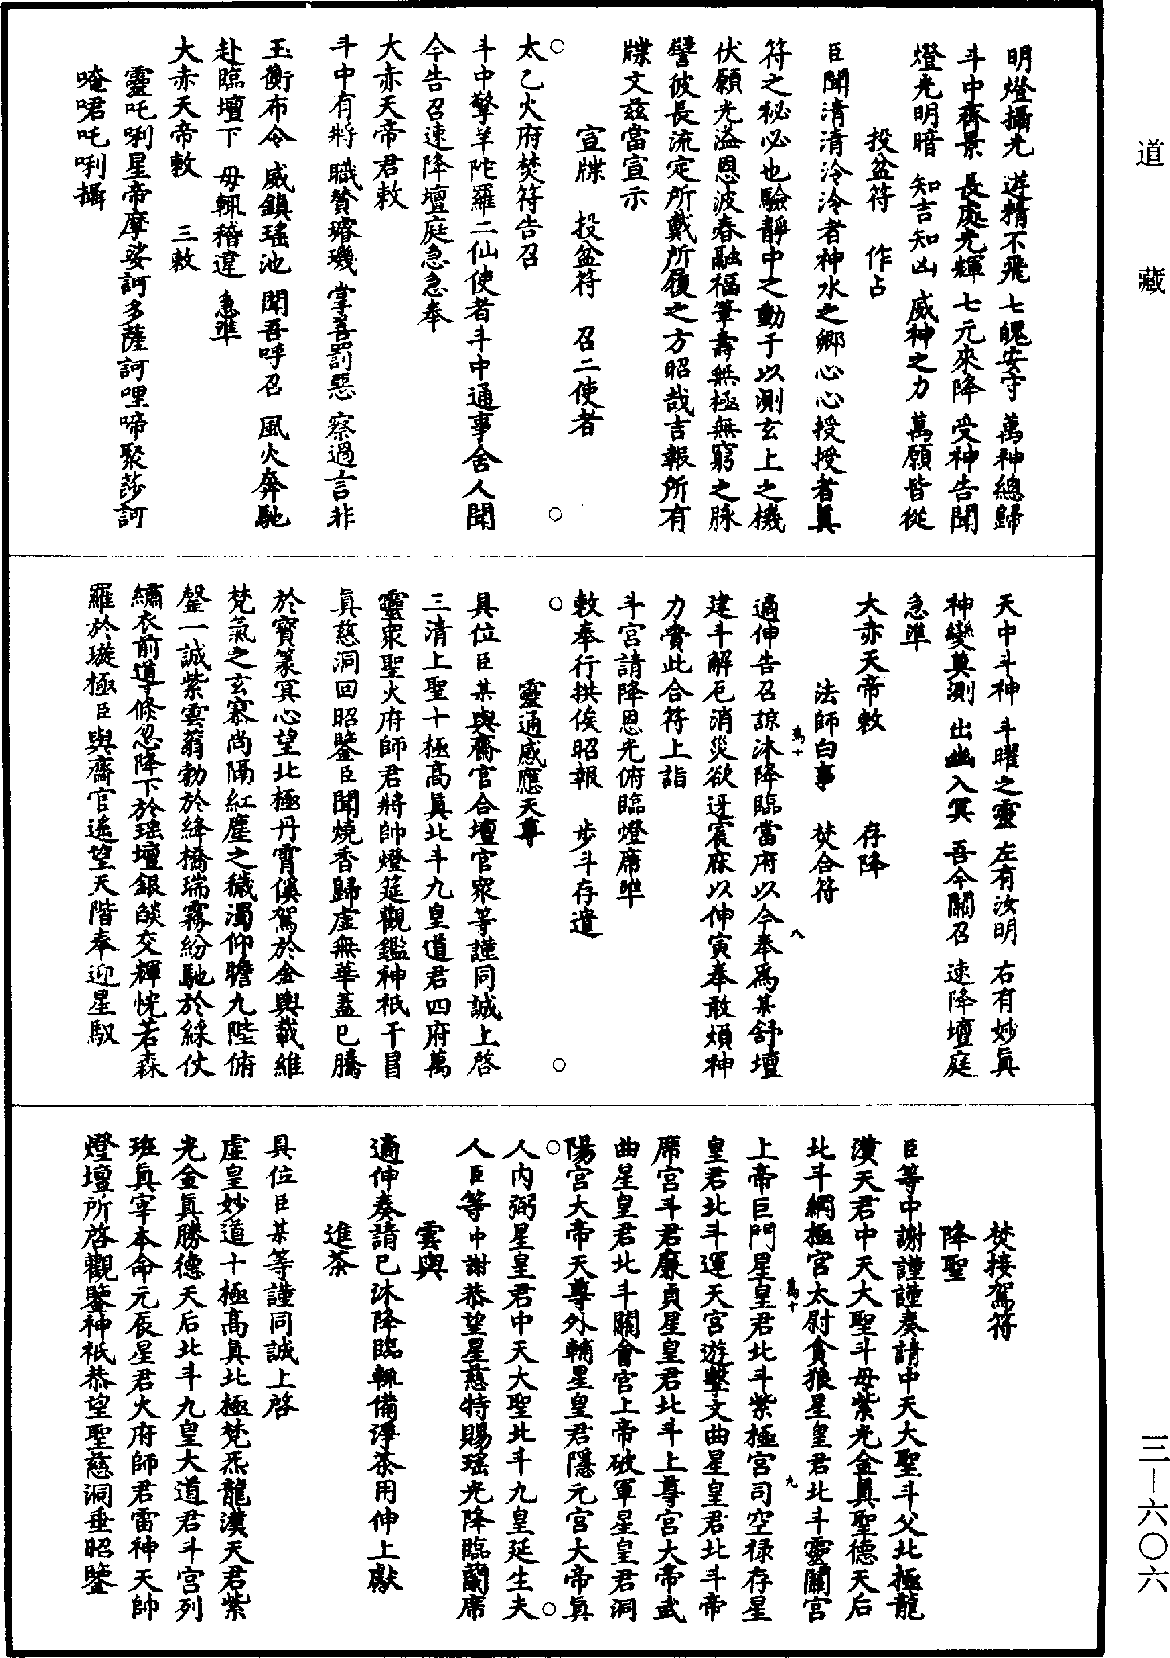 道藏
明燈攝光 遊精不飛 七魄安守 萬神總歸
斗中齊景 長處光輝 七元來降 受神告聞
燈光明暗 知吉知凶 威神之力 萬願皆從
投盆符 作占
臣聞清清泠泠者神水之鄉心心授授者真
符之秘必也驗靜中之動于以測玄上之機
伏願光溢恩波春融福筆壽無極無窮之脉
譬彼長流定所戴所履之方昭哉吉報所有
牒文茲當宣示
宣牒 投盆符 召二使者
太乙火府焚符告召
斗中擎羊陀羅二仙使者斗中通事舍人聞
今告召速降壇庭急急奉
大赤天帝君敕
斗中有將 職贊璿璣 掌善罰惡 察過言非
玉衡布令 威鎮瑤池 聞吾呼召 風火奔馳
赴臨壇下 毋輒稽違 急準
大赤天帝敕 三敕
靈吒唎星帝摩娑訶多薩訶哩啼聚莎訶
唵㖟吒唎攝
天中斗神 斗曜之靈 左有汝明 右有妙真
神變莫測 出幽入冥 吾今關召 速降壇庭
急準
大赤天帝敕 存降
法師白事 焚合符
適伸告召諒沐降臨當府以今奉為某舒壇
建斗解厄消災欲迓宸庥以伸寅奉敢煩神
力賫此合符上詣
斗宮請降恩光俯臨燈席準
敕奉行拱俟昭報 步斗存遣
靈通感應天尊
具位臣某與齋官合壇官衆等謹同誠上啓
三清上聖十極高真北斗九皇道君四府萬
靈衆聖火府師君將帥燈筵觀鑑神祇干冒
真慈洞回昭鑒臣聞燒香歸虛無華蓋已騰
於寶篆冥心望北極丹霄儀駕於金輿載維
梵氣之玄寥尚隔紅塵之穢濁仰瞻九陛俯
罄一誠紫雲蓊勃於絳橋瑞霧紛馳於綵仗
繡衣前導倏忽降下於瑤壇銀燄交輝恍若森
羅於璇極臣與齋官遙望天階奉迎星馭
焚接駕符
降聖
臣等中謝謹謹奏請中天大聖斗父北極龍
漢天君中天大聖斗母紫光金真聖德天后
北斗綱極宮太尉貪狼星皇君北斗靈關宮
上帝巨門星皇君北斗紫極宮司空祿存星
皇君北斗運天宮遊擊文曲星皇君北斗帝
席宮斗君廉貞星皇君北斗上尊宮大帝武
曲星皇君北斗關會宮上帝破軍星皇君洞
陽宮大帝天尊外輔星皇君隱元宮大帝真
人內弼星皇君中天大聖北斗九皇延生夫
人臣等中謝恭望星慈特賜瑤光降臨蘭席
雲輿
適伸奏請已沐降臨輒備淨茶用伸上獻
進茶
具位臣某等謹同誠上啓
虛皇妙道十極高真北極梵炁龍漢天君紫
光金真勝德天后北斗九皇大道君斗宮列
班真宰本命元辰星君火府師君雷神天帥
燈壇所啓觀鑒神祇恭望聖慈洞垂昭鑒
萬十 八
萬十 九
三—六〇六